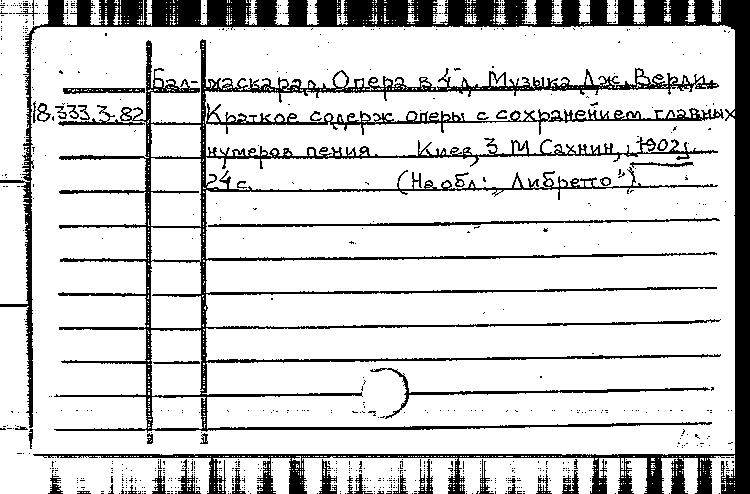 Бал-маскарад. Опера в 4 д. Музыка Дж. Верди.
18.333.3.82 Краткое содерж оперы с сохранением главных
нумеров пения. Киев, З. М Сахнин, [1902].
24 с. (На обл: „Либретто").